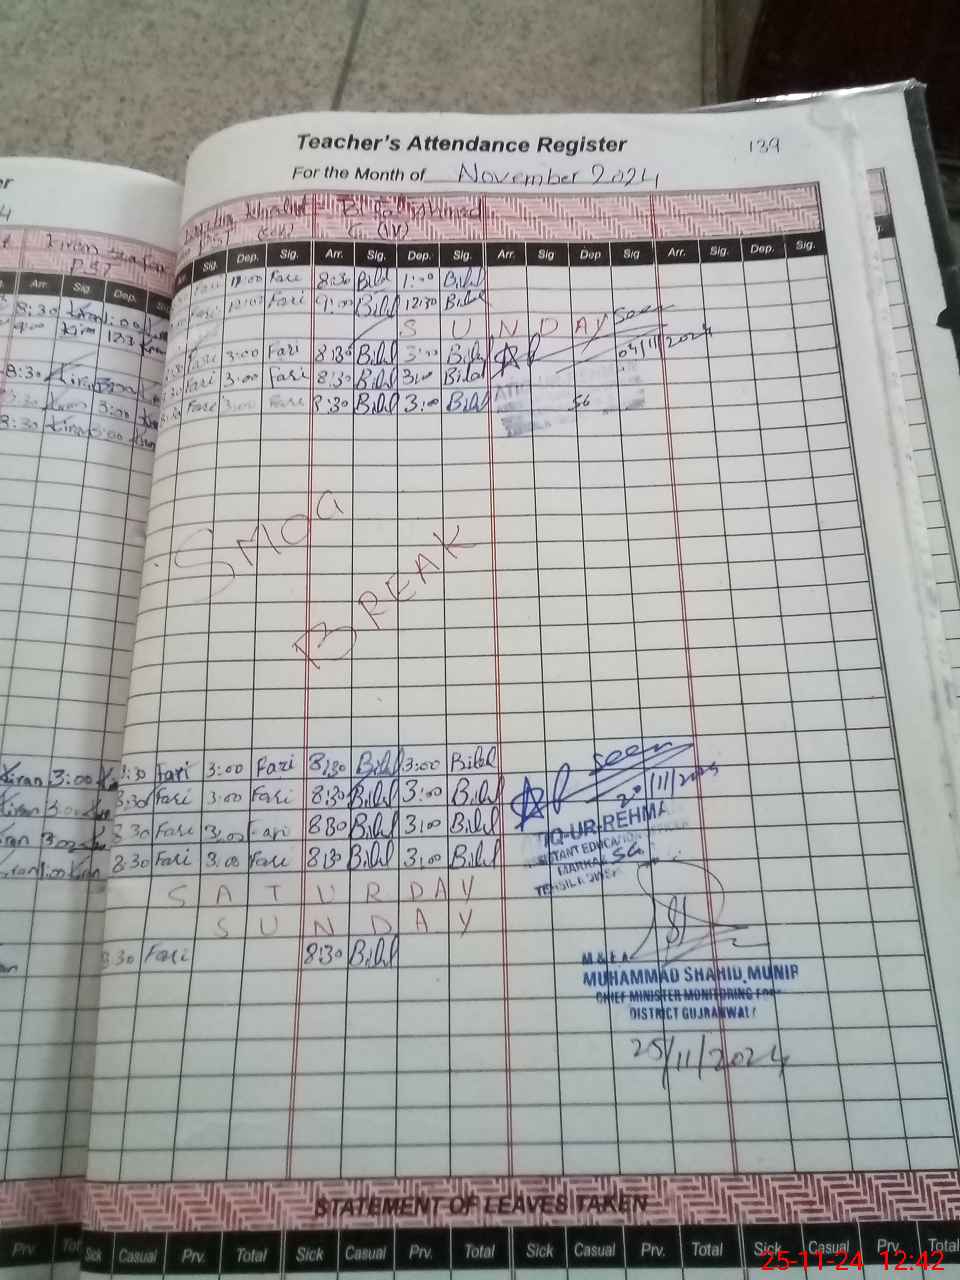 Teacher's Attendance Register 139
For the Month of November 2024
Kiran
PST
(IV)
Arr. Sig. Dep. Sig. Dep. Sig. Arr. Sig. Dep. Sig. Arr. Sig. Dep Sig Arr. Sig. Dep. Sig.
8:30 Fari 12:00 Fari 8:30 Bilal 1:00 Bilal
9:00 Fari 12:00 Fari 9:00 Bilal 12:30 Bilal
SUNDAY seen
8:30 Fari 3:00 Fari 8:30 Bilal 3:00 Bilal 04/11/2024
8:30 Kiran Fari 3:00 Fari 8:30 Bilal 3:00 Bilal
8:30 Kiran 3:00 Fari 3:00 Fari 8:30 Bilal 3:00 Bilal 56
SMOG
BREAK
Kiran 3:00 8:30 Fari 3:00 Fari 8:30 Bilal 3:00 Bilal seen
Kiran 3:00 8:30 Fari 3:00 Fari 8:30 Bilal 3:00 Bilal /11/2024
3:00 8:30 Fari 3:00 Fari 8:30 Bilal 3:00 Bilal IQ-UR-REHMA
1:00 Kiran 8:30 Fari 3:00 Fari 8:30 Bilal 3:00 Bilal MARKAZ 56
SATURDAY
SUNDAY
8:30 Fari 8:30 Bilal
M & E A
MUHAMMAD SHAHID MUNIR
CHIEF MINISTER MONITORING FOR
DISTRICT GUJRANWAL
25/11/2024
STATEMENT OF LEAVES TAKEN
Prv. Tot Sick Casual Prv. Total Sick Casual Prv. Total Sick Casual Prv. Total Sick Casual Prv. Total
25-11-24 12:42